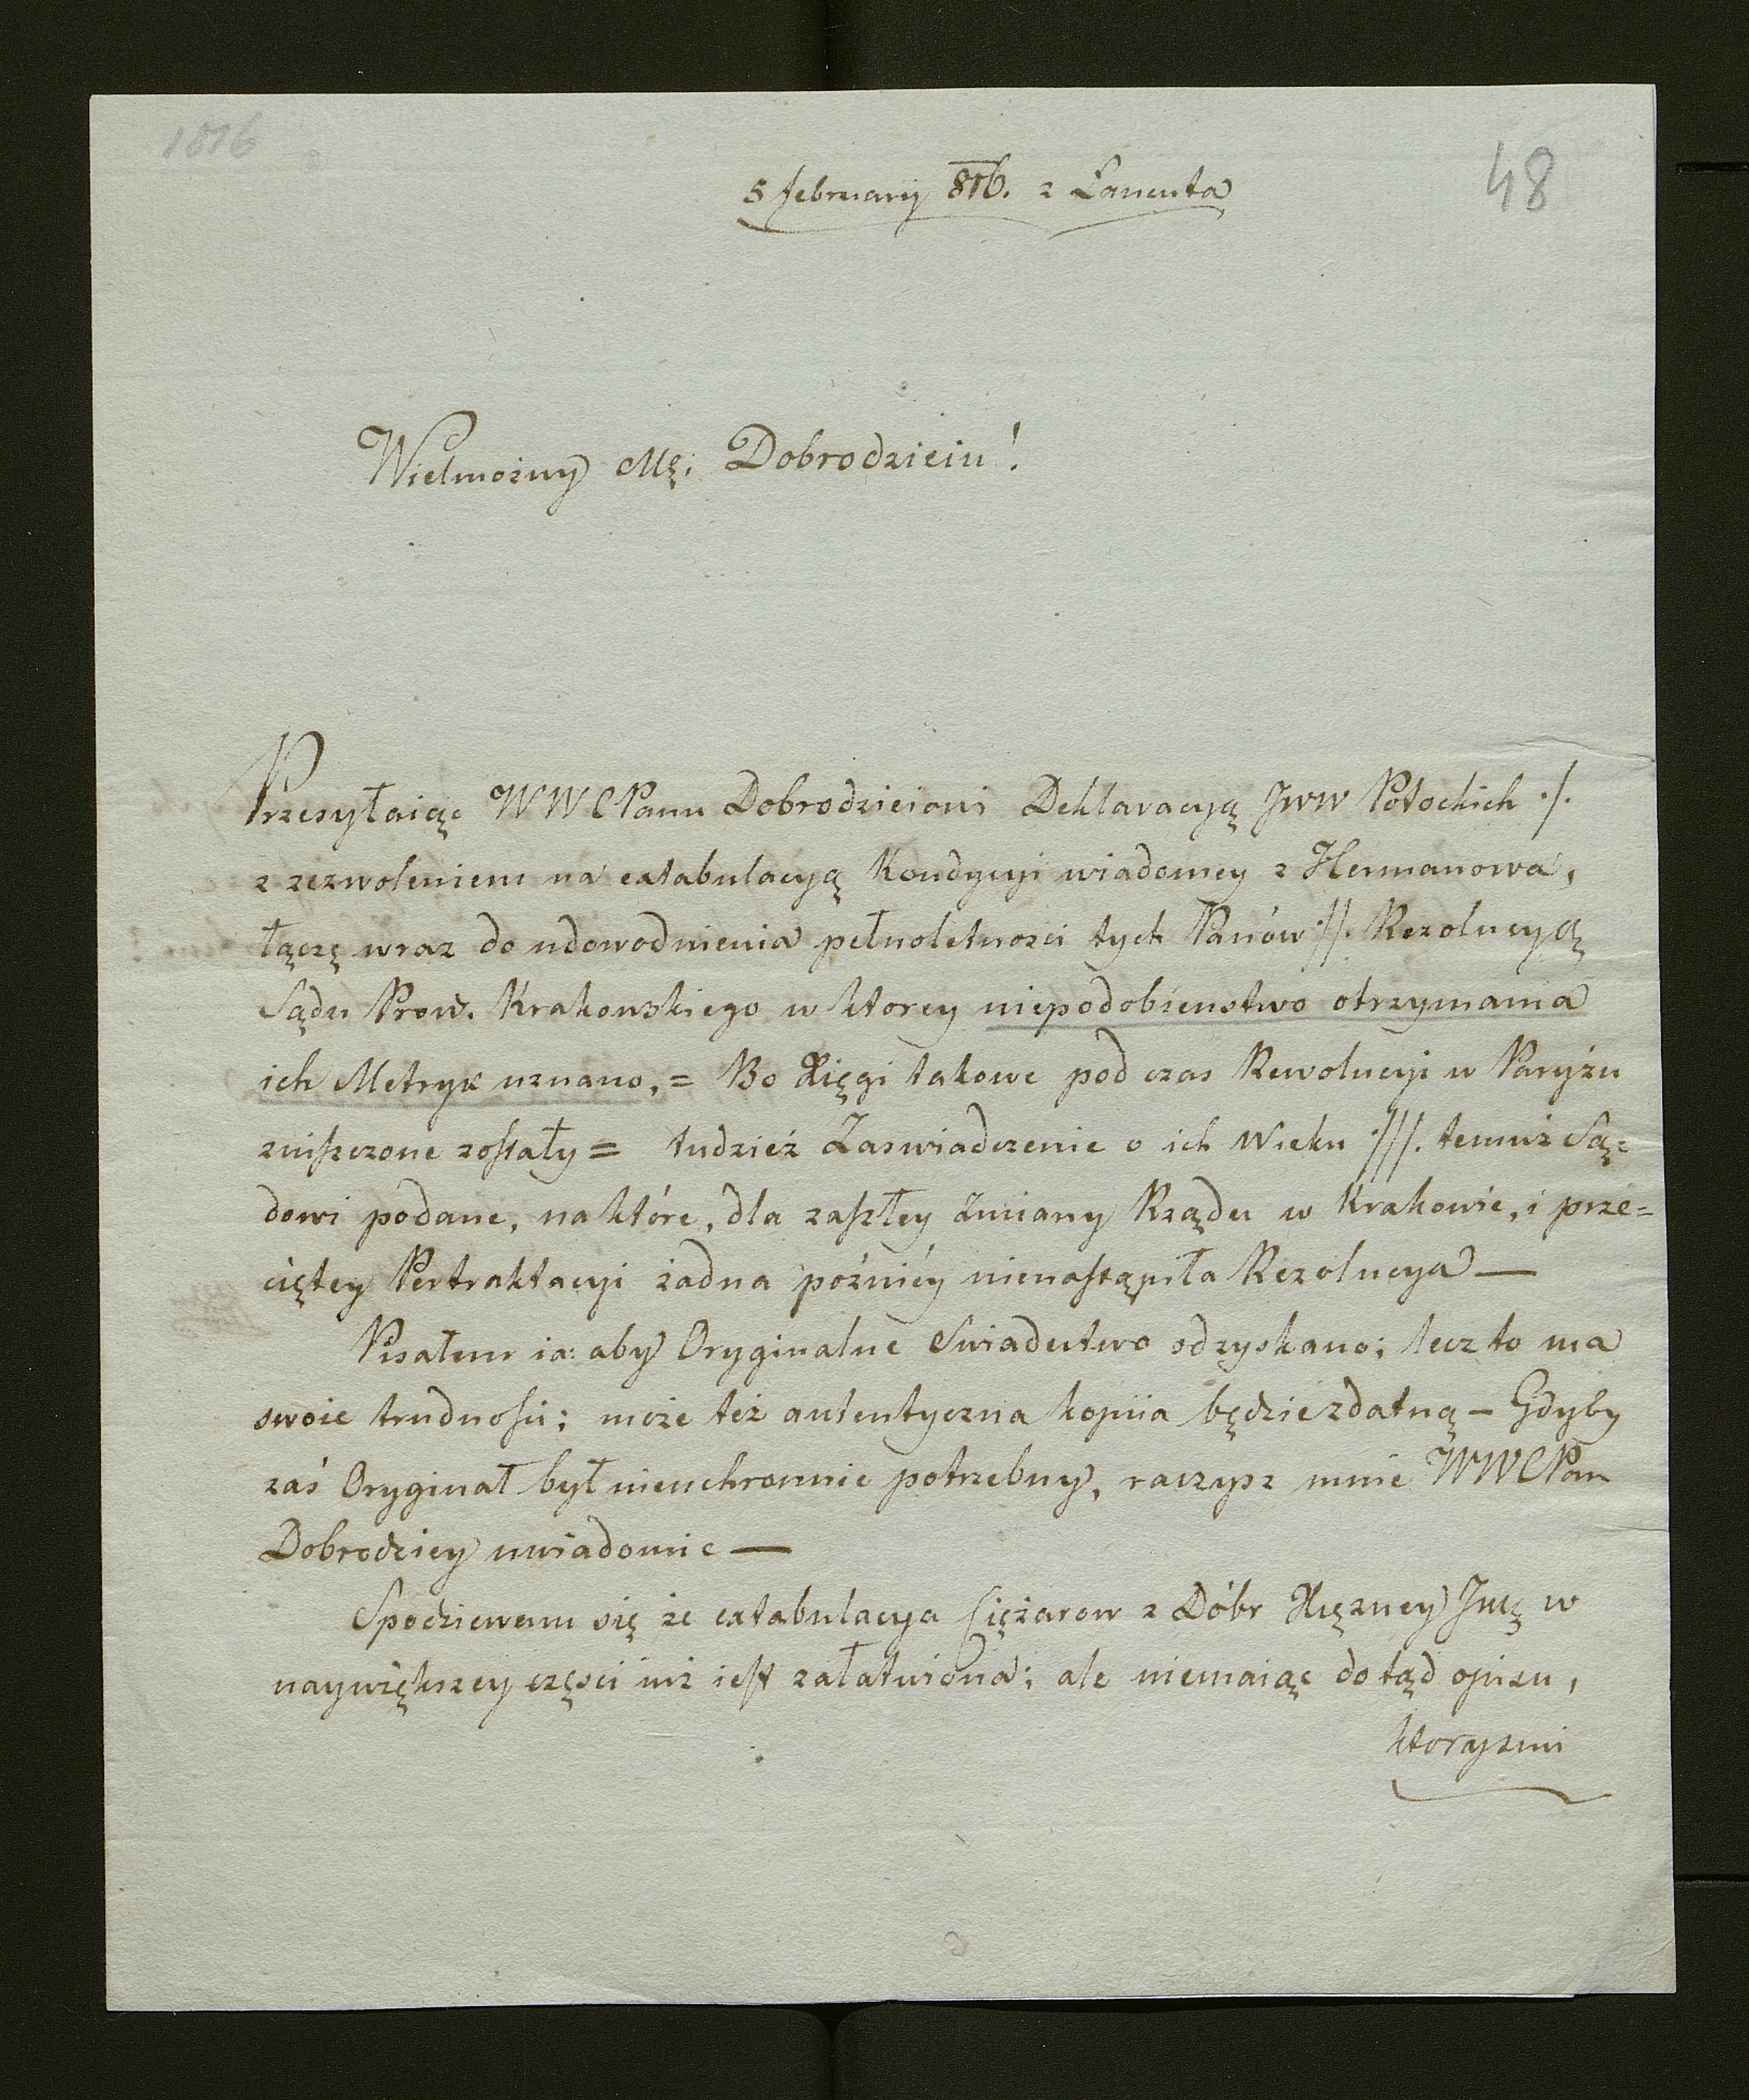 1816
48
5 february 816. z Łancuta
Wielmożny Mę. Dobrodzieiu!
Przesyłaiąc WWCPanu Dobrodzieiowi Deklaracyą JWW Potockich ./.
z zezwoleniem na extabulacyą Kondycyi wiadomey z Hermanowa,
łączę wraz do udowodnienia pełnoletnosci tych Panów .//. Rezolucyą
Sądu Prow. Krakowskiego w ktorey niepodobienstwo otrzymania
ich Metryk uznano, = Bo Xięgi takowe pod czas Rewolucyi w Paryżu
zniszczone zostały = tudzież Zaswiadczenie o ich Wieku .///. temuż Są=
dowi podane, na które, dla zaszłey Zmiany Rządu w Krakowie, i prze=
ciętey Pertraktacyi żadna późniéy nienastąpiła Rezolucya —
Pisałem ia: aby Oryginalne Swiadectwo odzyskano; lecz to ma
swoie trudności; może też autentyczna kopiia będzie zdatną — Gdyby
zaś Oryginał był nieuchronnie potrzebny, raczysz mnie WWCPan
Dobrodziey uwiadomic —
Spodziewam się że extabulacya Ciężarow z Dóbr Xiężney Jmę w
naywiększey częsci iuż iest załatwiona; ale niemaiąc dotąd opisu,
ktoryszmi